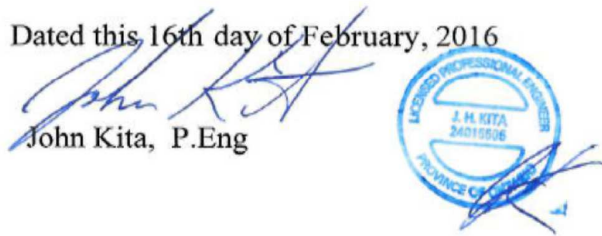 Dated this 16th day of February, 2016
John Kita
John Kita, P.Eng
LICENSED PROFESSIONAL ENGINEER
J. H. KITA
24016506
PROVINCE OF ONTARIO